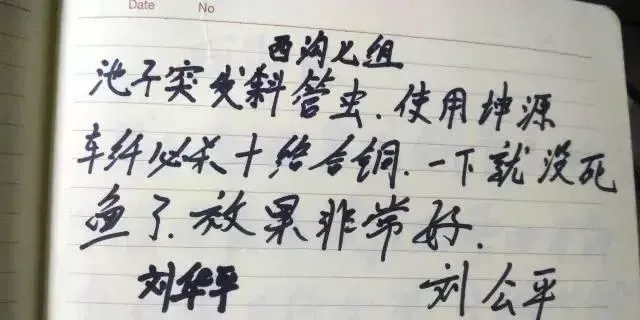 Date No
西沟七组
池子突发斜管虫.使用坤源
车纤必杀十络合铜.一下就没死
鱼了.效果非常好.
刘华平 刘公平